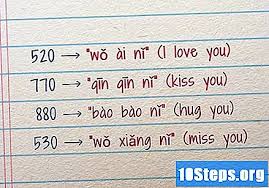 520 → "wǒ ài nǐ" (I love you)
770 → "qīn qīn nǐ" (kiss you)
880 → "bào bào nǐ" (hug you)
530 → "wǒ xiǎng nǐ" (miss you)
10Steps.org